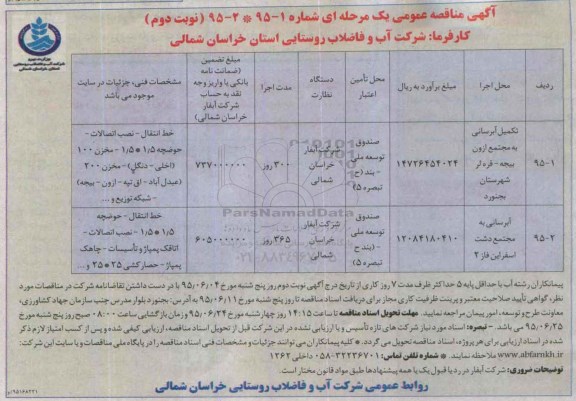 آگهی مناقصه عمومی یک مرحله ای شماره ۱-۹۵ * ۲-۹۵ (نوبت دوم)
کارفرما: شرکت آب و فاضلاب روستایی استان خراسان شمالی
ردیف
محل اجرا
مبلغ برآورد به ریال
محل تأمین اعتبار
دستگاه نظارت
مدت اجرا
مبلغ تضمین (ضمانت نامه بانکی یا واریز وجه نقد به حساب شرکت آبفار خراسان شمالی)
مشخصات فنی، جزئیات در سایت موجود می باشد
۹۵-۱
تکمیل آبرسانی به مجتمع ازون بیجه - قره لر شهرستان بجنورد
۱۴۷۲۶۴۵۴۰۲۴
صندوق توسعه ملی - بند (ح) تبصره ۵)
شرکت آبفار خراسان شمالی
۳۰۰ روز
۷۳۷۰۰۰۰۰۰
خط انتقال - نصب اتصالات - حوضچه ۱/۵ * ۱/۵ - مخزن ۱۰۰ (اخلی - دنگل) - مخزن ۲۰۰ (عبدل آباد - اق تپه - ازون - بیجه) - شبکه توزیع و ...
۹۵-۲
آبرسانی به مجتمع دشت اسفراین فاز ۲
۱۲۰۸۴۱۸۰۴۱۰
صندوق توسعه ملی - (بند ح تبصره ۵)
شرکت آبفار خراسان شمالی
۳۶۵ روز
۶۰۵۰۰۰۰۰۰
خط انتقال - حوضچه ۱/۵ * ۱/۵ - نصب اتصالات - اتاقک پمپاژ و تأسیسات - چاهک پمپاژ - حصارکشی ۲۵ * ۲۵ و ...
ParsNamadData
پیمانکاران رشته آب با حداقل پایه ۵ حداکثر ظرف مدت ۷ روز کاری از تاریخ درج آگهی نوبت دوم روز پنج شنبه مورخ ۹۵/۰۶/۰۴ با در دست داشتن تقاضانامه شرکت در مناقصات مورد
نظر، گواهی تأیید صلاحیت معتبر و پرینت ظرفیت کاری مجاز برای دریافت اسناد مناقصه تا روز پنج شنبه مورخ ۹۵/۰۶/۱۱ به آدرس: بجنورد بلوار مدرس جنب سازمان جهاد کشاورزی،
معاونت طرح و توسعه، امور پیمان مراجعه نمایید. مهلت تحویل اسناد مناقصه تا ساعت ۱۴:۱۵ روز چهارشنبه مورخ ۹۵/۰۶/۲۴ و زمان بازگشایی ساعت ۰۸:۰۰ صبح روز پنج شنبه مورخ
۹۵/۰۶/۲۵ می باشد. - تبصره: اسناد مورد نیاز شرکت های تازه تأسیس و یا ارزیابی نشده در این شرکت قبل از تحویل اسناد مناقصه، ارزیابی کیفی شده و پس از کسب امتیاز لازم ذکر
شده در اسناد ارزیابی برای هر پروژه، اسناد مناقصه تحویل می گردد. * کلیه پیمانکاران می توانند جزئیات و مشخصات فنی اسناد مناقصه را در پایگاه ملی مناقصات و یا سایت این شرکت:
www.abfarnkh.ir ملاحظه نمایند. * شماره تلفن تماس: ۳۲۲۳۶۷۰۱-۰۵۸ داخلی ۱۲۶۲
توضیحات ضروری: شرکت آبفار در رد یا قبول یک یا همه پیشنهادها طبق مواد قانون مختار است.
روابط عمومی شرکت آب و فاضلاب روستایی خراسان شمالی